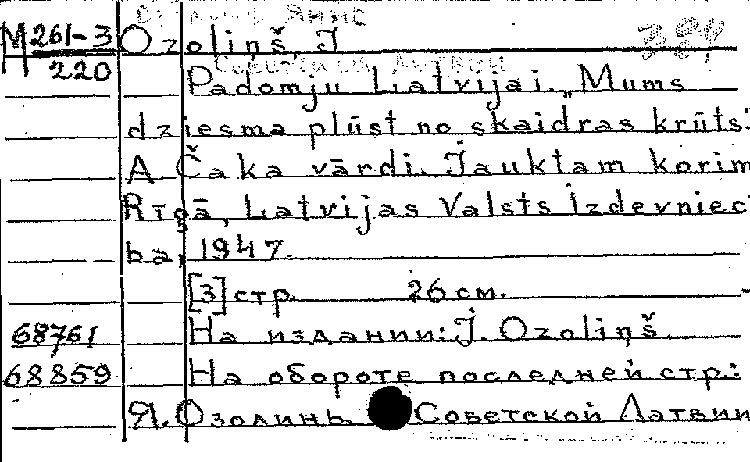 М 261-3
220
Ozoliņš, J
Padomju Latvijai. „Mums
dziesma plūst no skaidras krūts:
A Čaka vārdi. Jauktam korim
Rīgā, Latvijas Valsts Izdevniec
ba, 1947.
[3] стр. 26 см.
68761 На издании: J. Ozoliņš.
68859 На обороте последней стр.:
Я. Озолинь. Советской Латвии